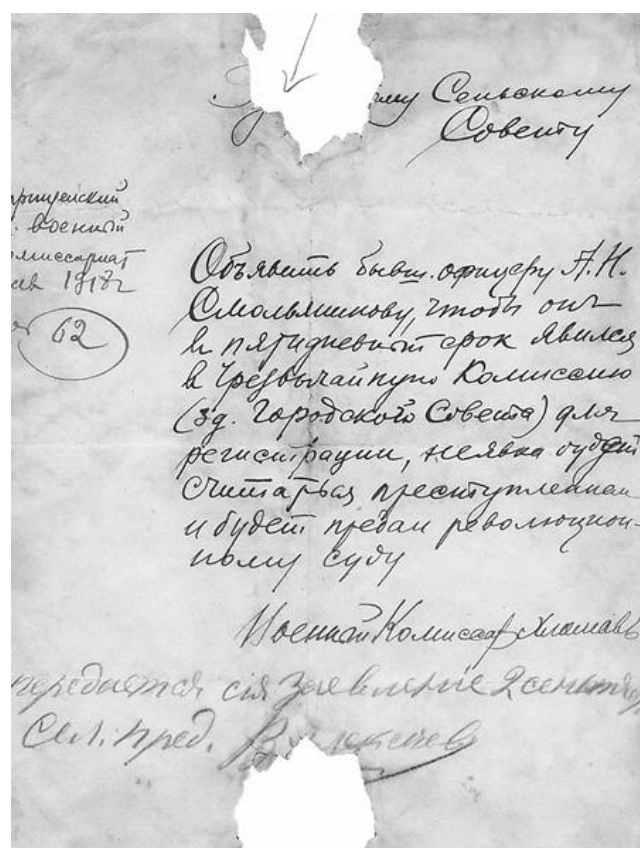 Сельскому
Совету
военный
1918 г
62
Объявить бывш. офицеру А. Н.
Смольянинову, чтобы онъ
в пятидневный срок явился
в Чрезвычайную Комиссию
(зд. Городского Совета) для
регистрации, неявка будет
считаться преступлением
и будет предан революцион-
ному суду
Военный Комиссар
передается сія заявленіе 2 сентября
Сел. пред.